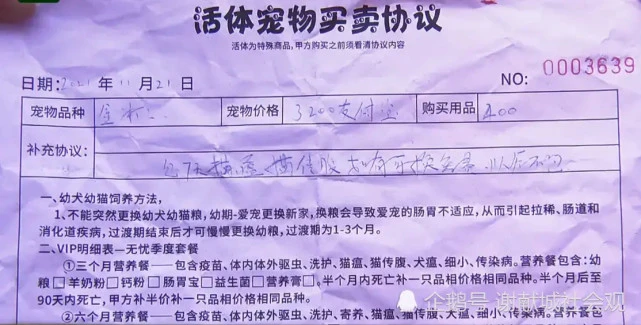 活体宠物买卖协议
活体为特殊商品,甲方购买之前须看清协议内容
日期:2021 年 11 月 21 日 NO: 0003639
宠物品种 金 宠物价格 3200支付宝 购买用品 400
补充协议:
一、幼犬幼猫饲养方法,
1、不能突然更换幼犬幼猫粮,幼期-爱宠更换新家,换粮会导致爱宠的肠胃不适应,从而引起拉稀、肠道和
消化道疾病,过渡期结束后才可慢慢更换幼粮,过渡期为1-3个月。
二、VIP明细表—无忧季度套餐
①三个月营养餐——包含疫苗、体内体外驱虫、洗护、猫瘟、猫传腹、犬瘟、细小、传染病。营养餐包含:幼
粮□羊奶粉□钙粉□肠胃宝□益生菌□营养膏□。半个月内死亡补一只品相价格相同品种。半个月后至
90天内死亡,甲方补半价补一只品相价格相同品种。
②六个月营养餐——包含疫苗、体内体外驱虫、洗护、寄养、猫瘟、猫传腹、犬瘟、细小、传染病。营养餐包
企鹅号 谢献城社会观